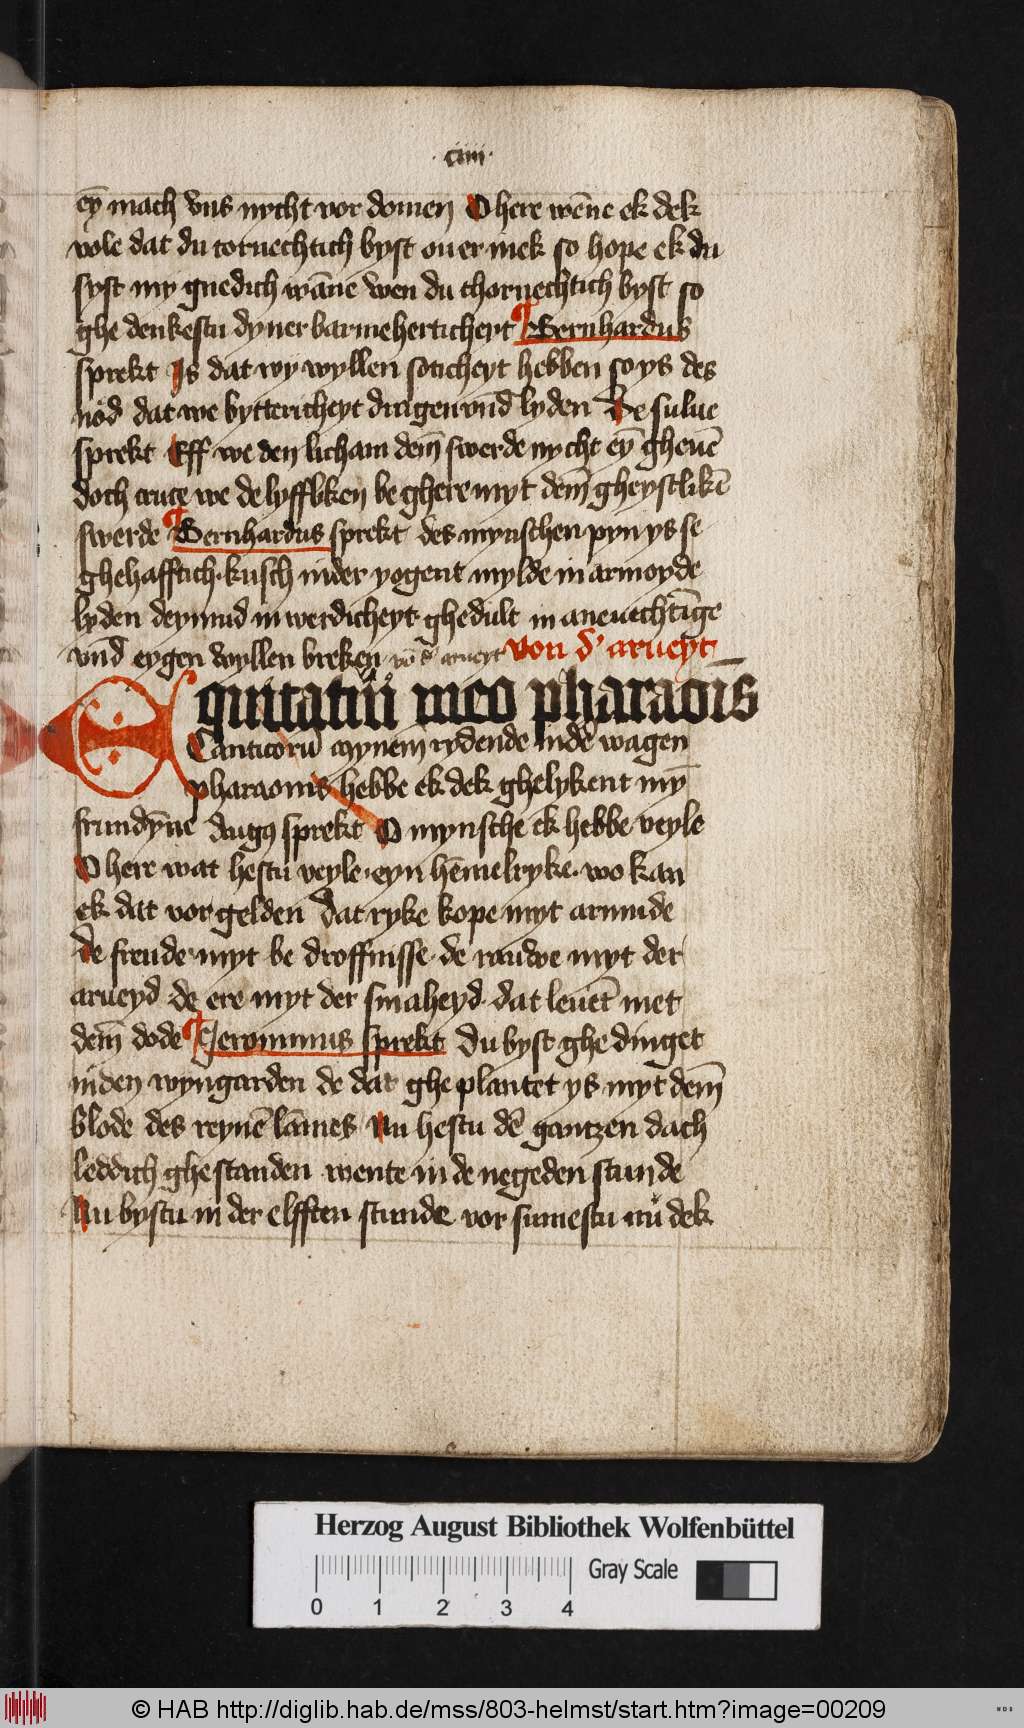 · ciiii ·
ey̅ mach vns nycht vor domen O here we̅ne ek dek
vole dat du tornechtich byst ouer mek so hope ek du
syst my gnedich wa̅ne wen du thornechtich byst so
ghe denkestu dyner barmeherticheyt Bernhardus
sprekt Is dat wy wyllen soticheyt hebben so ys des
nod dat we bittericheyt dragen vnd lyden De sulue
sprekt Eff we den licham dem̅ swerde nycht ey̅ gheue̅
doch cruce we de lyffliken be ghere myt dem̅ gheystlike̅
swerde Bernhardus sprekt des mynschen pyn ys se
ghehafftich · kusch in der yogent mylde in armoyde
lyden deymud in werdicheyt ghedult in aneuechti̅ge
vnd eygen wyllen breken vo̅ d' arueyt von d' arueyt
Equitatui meo pharaois̅
Canticoru̅ Mynem rydende in de̅ wagen
pharaonis hebbe ek dek ghelykent my̅
frundy̅ne Augꝰ sprekt O mynsche ek hebbe veyle
O here wat hestu veyle · eyn he̅melryke · wo kan
ek dat vor gelden Dat ryke kope myt armude
de freude · myt be droffnisse · de rauwe myt der
arueyd de ere myt der smaheyd · dat leuet̅ met
dem̅ dode Jeronimus sprekt Du byst ghe dinget
in den wyngarden de dat ghe plantet ys myt dem̅
blode des reyne̅ la̅mes Nu hestu de̅ gantzen dach
leddich ghe standen wente in de negeden stunde
Nu bystu in der elfften stunde vor sumestu nu dek
Herzog August Bibliothek Wolfenbüttel
Gray Scale
0 1 2 3 4
© HAB http://diglib.hab.de/mss/803-helmst/start.htm?image=00209